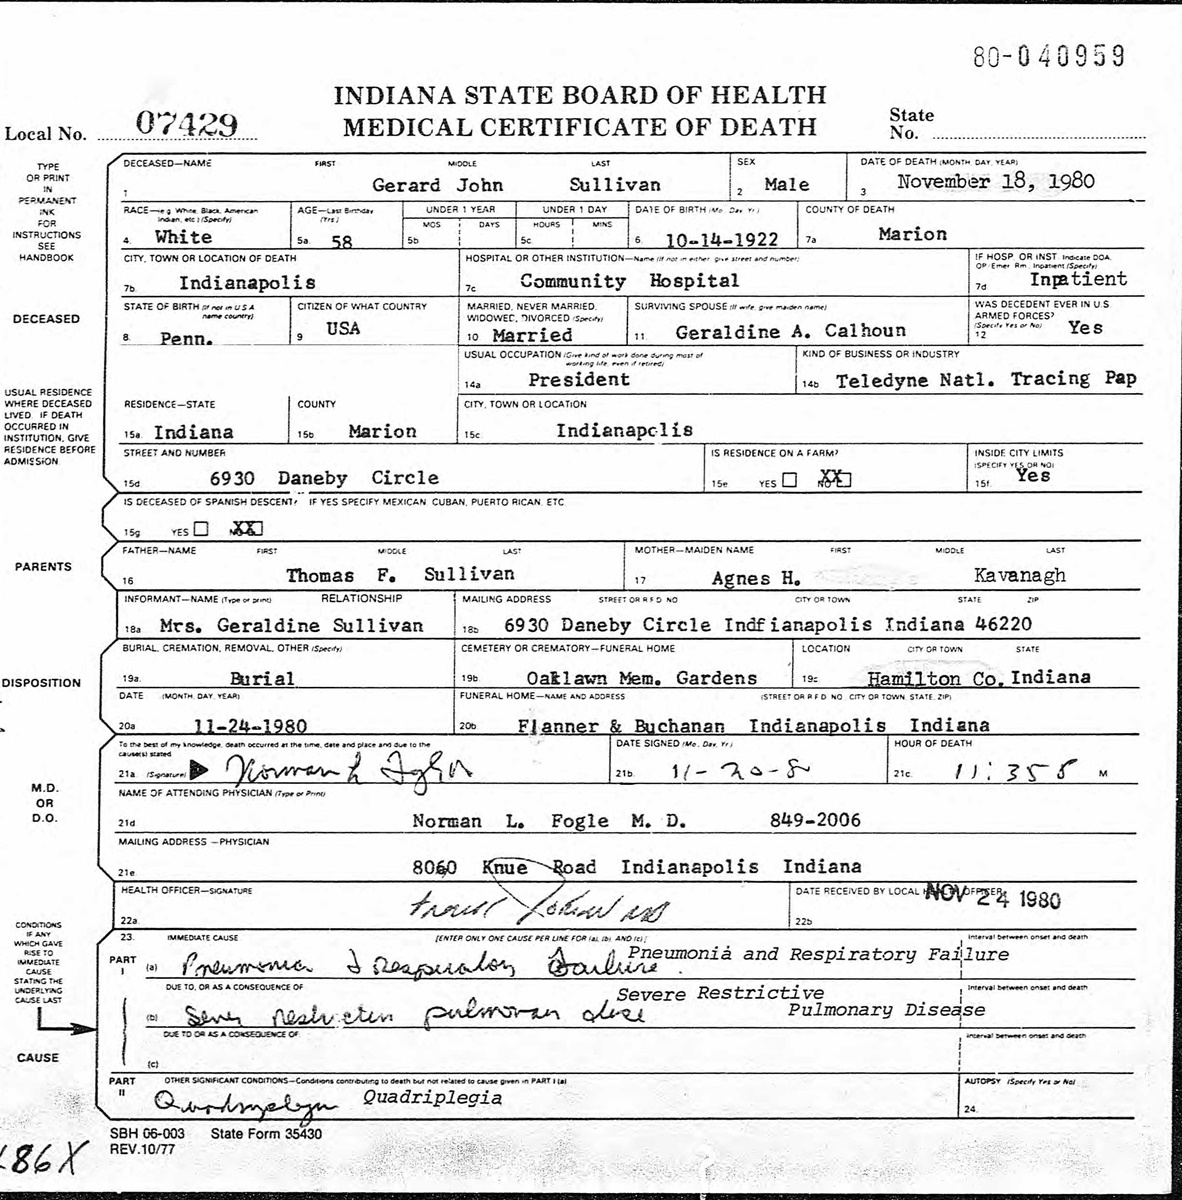 80-040959
INDIANA STATE BOARD OF HEALTH
MEDICAL CERTIFICATE OF DEATH
Local No. 07429
State No.
TYPE OR PRINT IN PERMANENT INK FOR INSTRUCTIONS SEE HANDBOOK
DECEASED—NAME FIRST MIDDLE LAST
1 Gerard John Sullivan
SEX
2 Male
DATE OF DEATH (MONTH, DAY, YEAR)
3 November 18, 1980
RACE—e.g. White, Black, American Indian, etc.) (Specify)
4. White
AGE—Last Birthday (Yrs.)
5a. 58
UNDER 1 YEAR
MOS DAYS
5b
UNDER 1 DAY
HOURS MINS
5c
DATE OF BIRTH (Mo. Day. Yr.)
6. 10-14-1922
COUNTY OF DEATH
7a Marion
CITY, TOWN OR LOCATION OF DEATH
7b. Indianapolis
HOSPITAL OR OTHER INSTITUTION—Name (If not in either, give street and number)
7c Community Hospital
IF HOSP OR INST Indicate DOA, OP/Emer. Rm., Inpatient (Specify)
7d Inpatient
DECEASED
STATE OF BIRTH (If not in U.S.A. name country)
8. Penn.
CITIZEN OF WHAT COUNTRY
9 USA
MARRIED, NEVER MARRIED, WIDOWED, DIVORCED (Specify)
10 Married
SURVIVING SPOUSE (If wife, give maiden name)
11 Geraldine A. Calhoun
WAS DECEDENT EVER IN U.S. ARMED FORCES? (Specify Yes or No)
12 Yes
USUAL OCCUPATION (Give kind of work done during most of working life, even if retired)
14a President
KIND OF BUSINESS OR INDUSTRY
14b Teledyne Natl. Tracing Pap
USUAL RESIDENCE WHERE DECEASED LIVED. IF DEATH OCCURRED IN INSTITUTION, GIVE RESIDENCE BEFORE ADMISSION
RESIDENCE—STATE
15a Indiana
COUNTY
15b Marion
CITY, TOWN OR LOCATION
15c Indianapolis
STREET AND NUMBER
15d 6930 Daneby Circle
IS RESIDENCE ON A FARM?
15e YES XX NO
INSIDE CITY LIMITS (SPECIFY YES OR NO)
15f. Yes
IS DECEASED OF SPANISH DESCENT? IF YES SPECIFY MEXICAN, CUBAN, PUERTO RICAN, ETC.
15g YES XX NO
PARENTS
FATHER—NAME FIRST MIDDLE LAST
16 Thomas F. Sullivan
MOTHER—MAIDEN NAME FIRST MIDDLE LAST
17 Agnes H. Kavanagh
INFORMANT—NAME (Type or print) RELATIONSHIP
18a Mrs. Geraldine Sullivan
MAILING ADDRESS STREET OR R.F.D. NO CITY OR TOWN STATE ZIP
18b 6930 Daneby Circle Indfianapolis Indiana 46220
DISPOSITION
BURIAL, CREMATION, REMOVAL, OTHER (Specify)
19a. Burial
CEMETERY OR CREMATORY—FUNERAL HOME
19b Oaklawn Mem. Gardens
LOCATION CITY OR TOWN STATE
19c Hamilton Co. Indiana
DATE (MONTH, DAY, YEAR)
20a 11-24-1980
FUNERAL HOME—NAME AND ADDRESS (STREET OR R.F.D. NO. CITY OR TOWN, STATE, ZIP)
20b Flanner & Buchanan Indianapolis Indiana
M.D. OR D.O.
To the best of my knowledge, death occurred at the time, date and place and due to the cause(s) stated.
21a (Signature) Norman L Fogle
DATE SIGNED (Mo., Day, Yr.)
21b. 11-20-8
HOUR OF DEATH
21c. 11:35 M
NAME OF ATTENDING PHYSICIAN (Type or Print)
21d Norman L. Fogle M. D. 849-2006
MAILING ADDRESS—PHYSICIAN
21e 8060 Knue Road Indianapolis Indiana
HEALTH OFFICER—SIGNATURE
22a.
DATE RECEIVED BY LOCAL HEALTH OFFICER
22b NOV 24 1980
CONDITIONS IF ANY WHICH GAVE RISE TO IMMEDIATE CAUSE STATING THE UNDERLYING CAUSE LAST
CAUSE
23. IMMEDIATE CAUSE [ENTER ONLY ONE CAUSE PER LINE FOR (a), (b), AND (c)] Interval between onset and death
PART I (a) Pneumonia & Respiratory Failure. Pneumonia and Respiratory Failure
DUE TO, OR AS A CONSEQUENCE OF Interval between onset and death
(b) Sever restrictiv pulmonary disese Severe Restrictive Pulmonary Disease
DUE TO OR AS A CONSEQUENCE OF. Interval between onset and death
(c)
PART II OTHER SIGNIFICANT CONDITIONS—Conditions contributing to death but not related to cause given in PART I (a)
Quadriplegia Quadriplegia
AUTOPSY (Specify Yes or No)
24.
SBH 06-003 State Form 35430
REV.10/77
86X